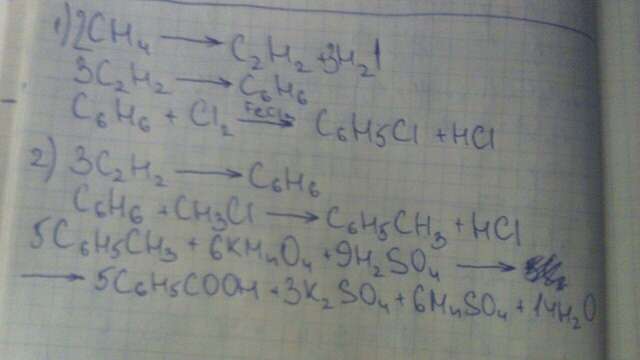 1) 2CH₄ ⟶ C₂H₂ + 3H₂↑
3C₂H₂ ⟶ C₆H₆
C₆H₆ + Cl₂ ⟶ C₆H₅Cl + HCl
2) 3C₂H₂ ⟶ C₆H₆
C₆H₆ + CH₃Cl ⟶ C₆H₅CH₃ + HCl
5C₆H₅CH₃ + 6KMnO₄ + 9H₂SO₄ ⟶
⟶ 5C₆H₅COOH + 3K₂SO₄ + 6MnSO₄ + 14H₂O